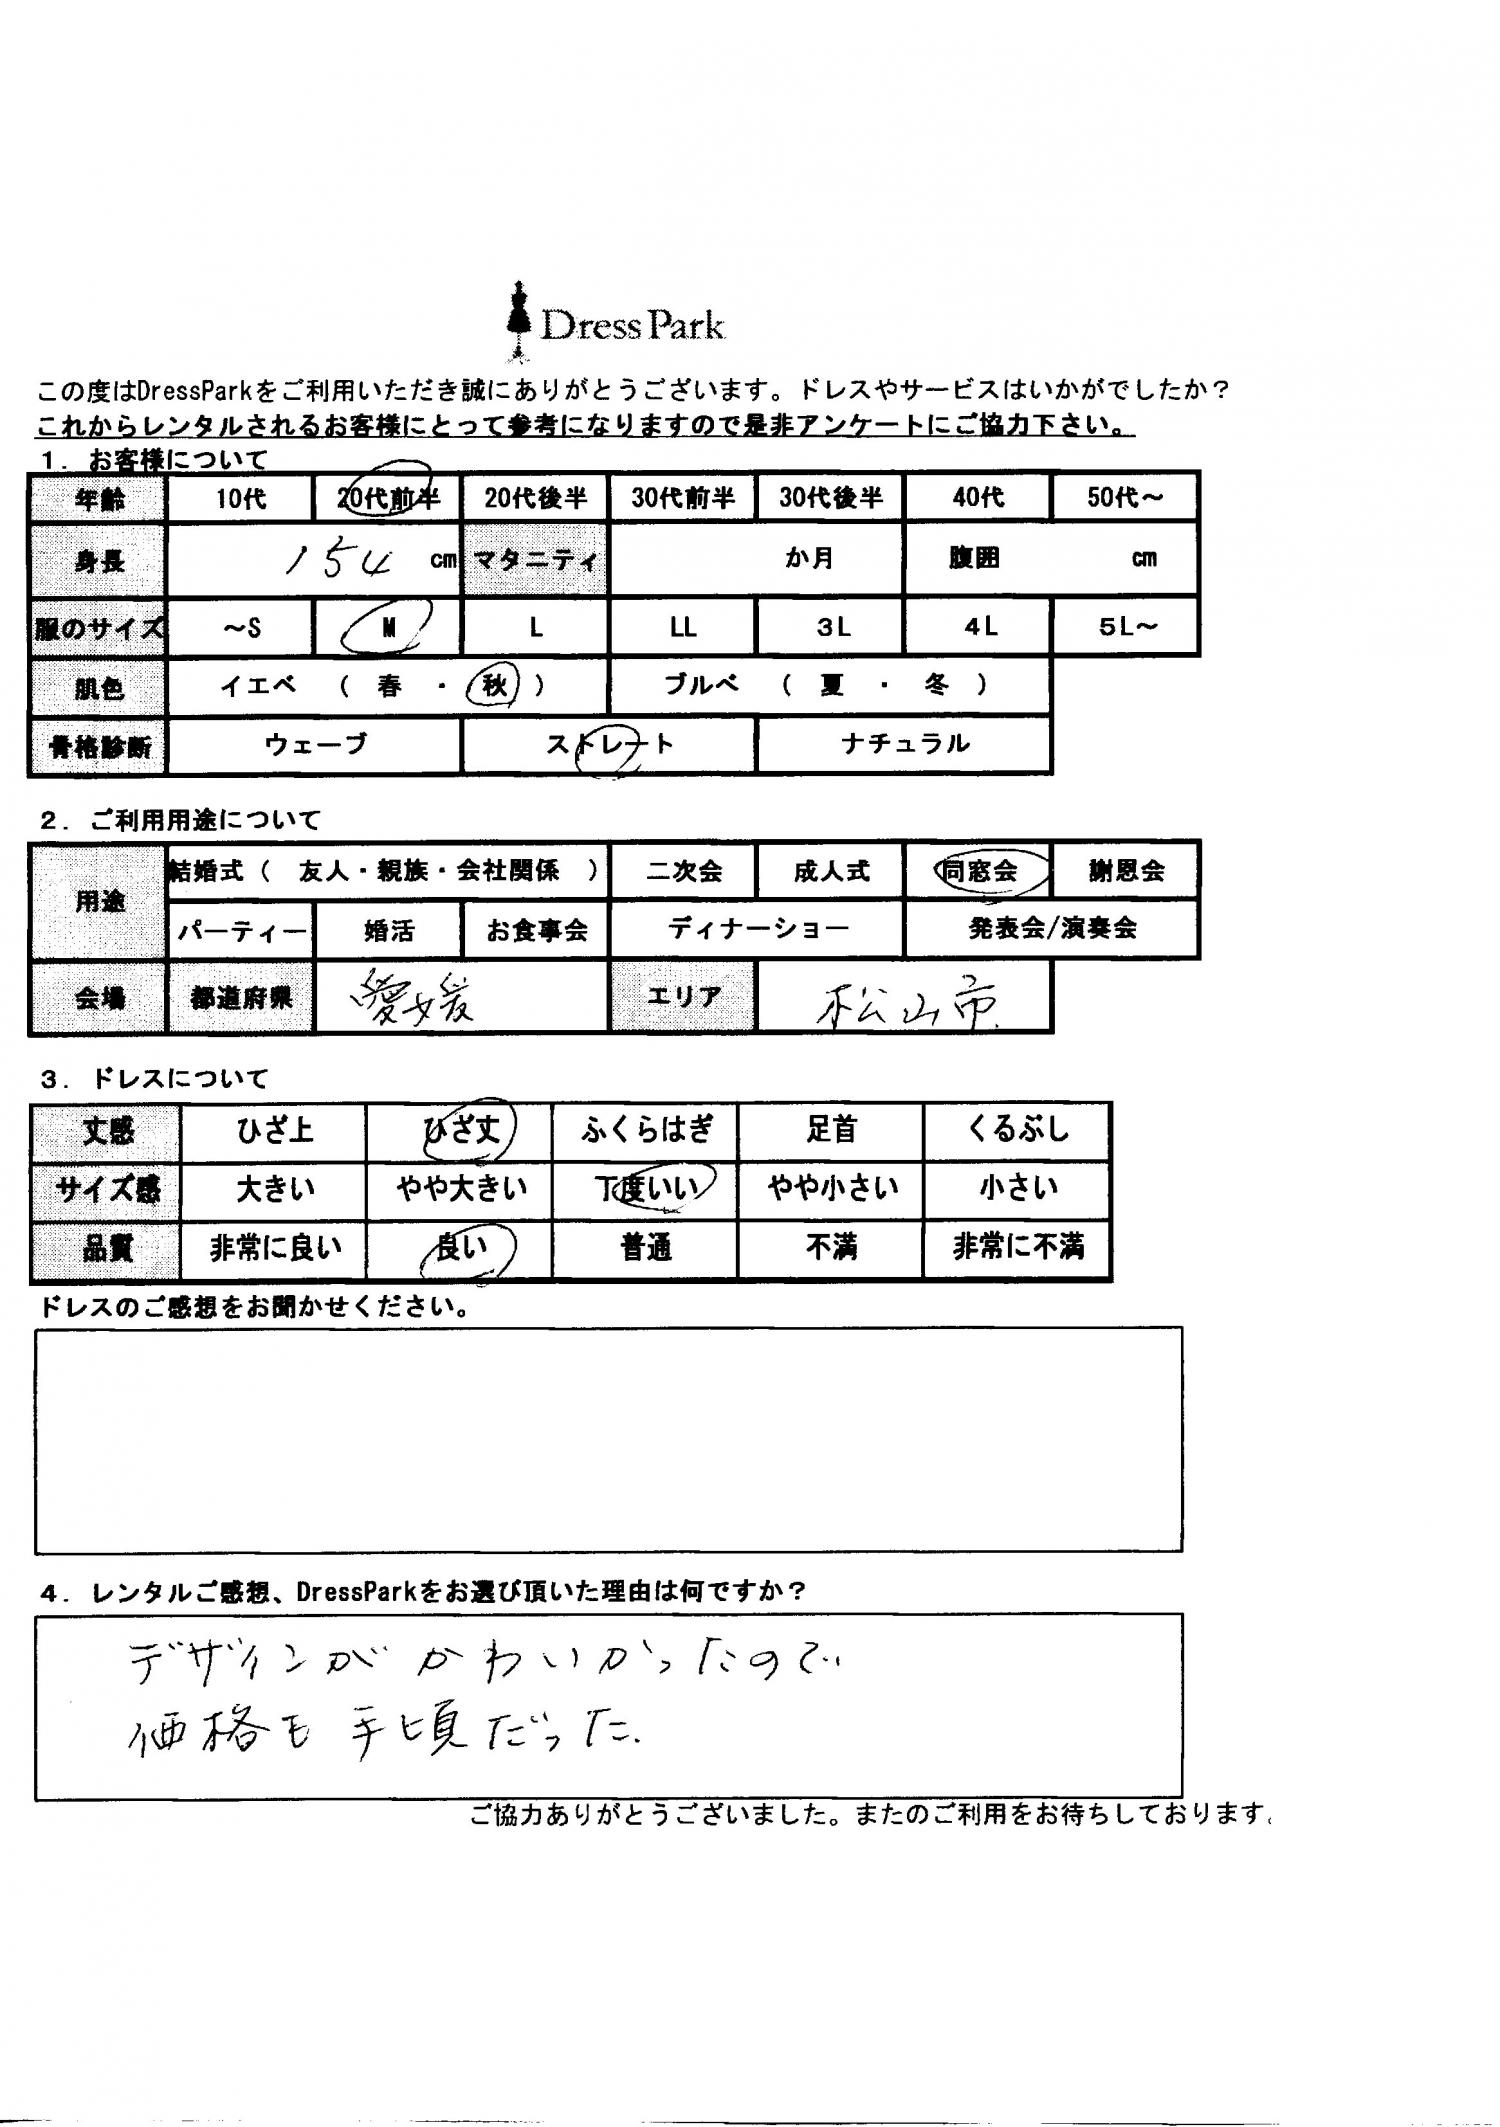 DressPark
この度はDressParkをご利用いただき誠にありがとうございます。ドレスやサービスはいかがでしたか？
これからレンタルされるお客様にとって参考になりますので是非アンケートにご協力下さい。
１．お客様について
年齢 10代 20代前半 20代後半 30代前半 30代後半 40代 50代～
身長 154 cm マタニティ か月 腹囲 cm
服のサイズ ～S M L LL 3L 4L 5L～
肌色 イエベ （ 春 ・ 秋 ） ブルベ （ 夏 ・ 冬 ）
骨格診断 ウェーブ ストレート ナチュラル
２．ご利用用途について
用途 結婚式（ 友人・親族・会社関係 ） 二次会 成人式 同窓会 謝恩会
パーティー 婚活 お食事会 ディナーショー 発表会/演奏会
会場 都道府県 愛媛 エリア 松山市
３．ドレスについて
丈感 ひざ上 ひざ丈 ふくらはぎ 足首 くるぶし
サイズ感 大きい やや大きい 丁度いい やや小さい 小さい
品質 非常に良い 良い 普通 不満 非常に不満
ドレスのご感想をお聞かせください。
４．レンタルご感想、DressParkをお選び頂いた理由は何ですか？
デザインがかわいかったので
価格も手頃だった.
ご協力ありがとうございました。またのご利用をお待ちしております。